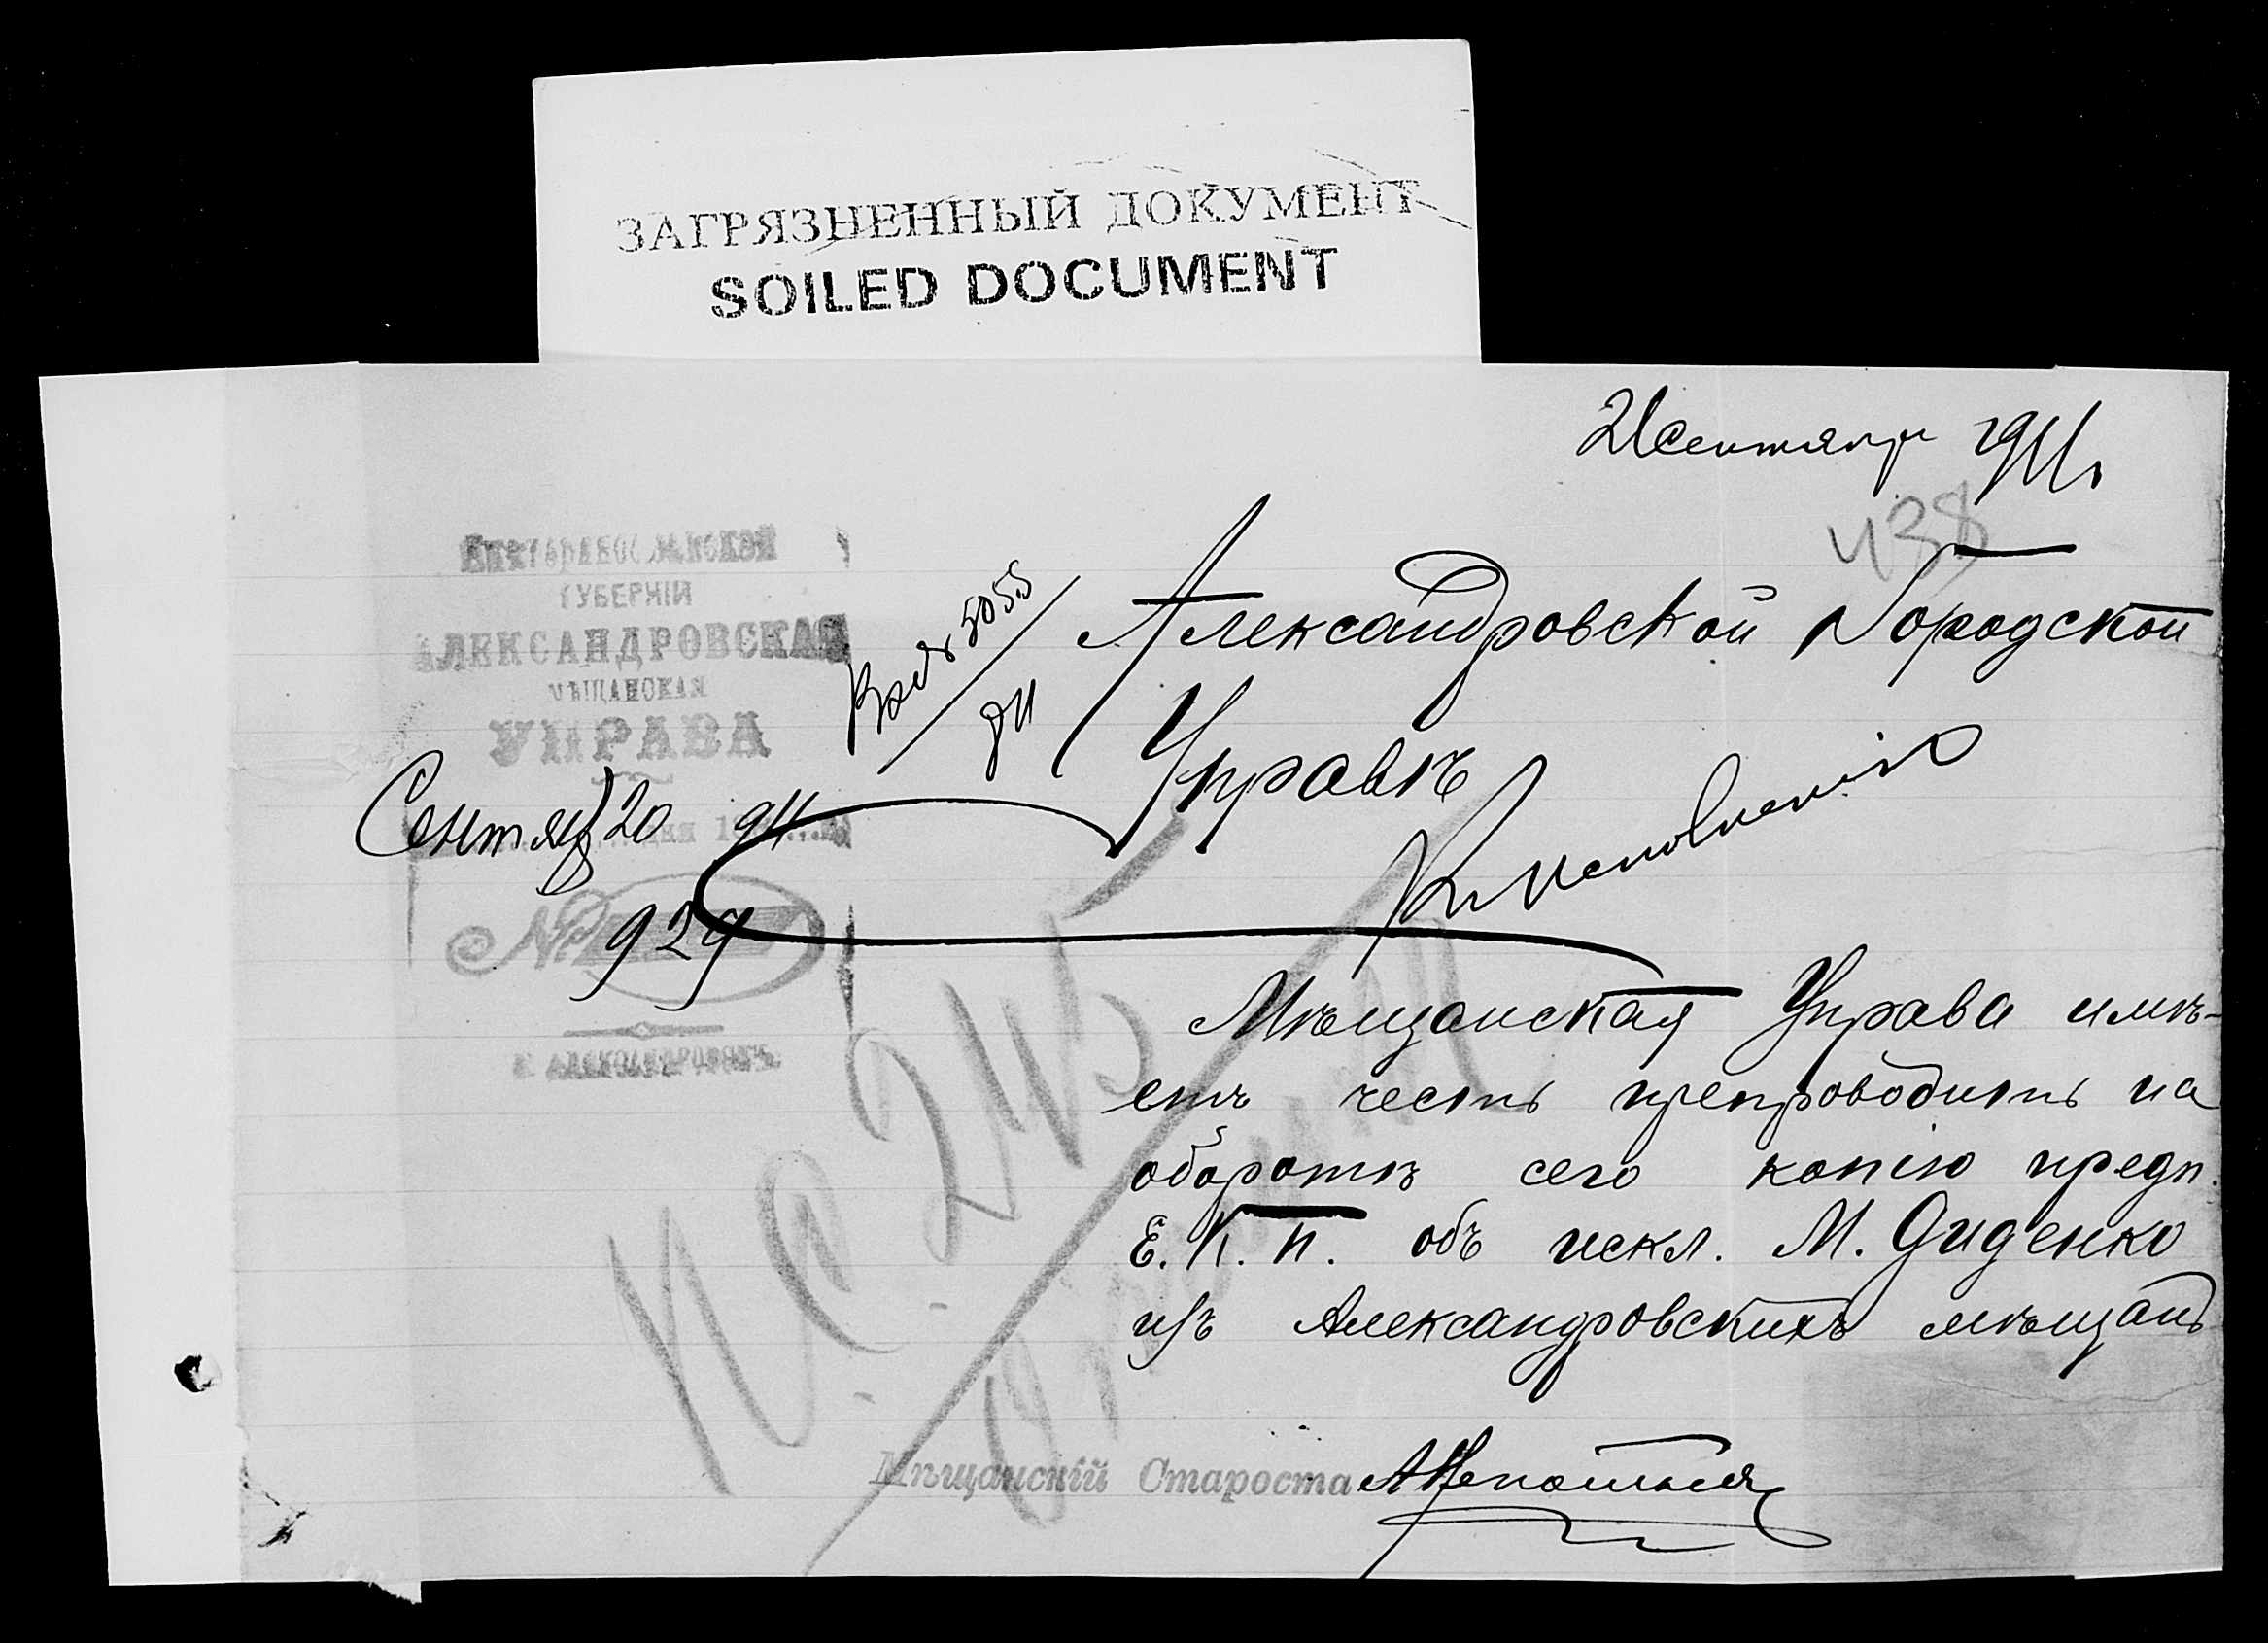 ЗАГРЯЗНЕННЫЙ ДОКУМЕНТ
SOILED DOCUMENT
21 Сентября 1911
438
Екатеринославской
ГУБЕРНІИ
АЛЕКСАНДРОВСКАЯ
МѢЩАНСКАЯ
УПРАВА
Сентяб 20 911
№ 929
Г. АЛЕКСАНДРОВСКЪ.
5055
Александровской Городской
Управѣ
К исполненію
Мѣщанская Управа имѣ-
етъ честь препроводить на
оборотѣ сего копію предп.
Е. К. П. объ искл. М. Диденко
изъ Александровскихъ мѣщанъ
Мѣщанскій Староста